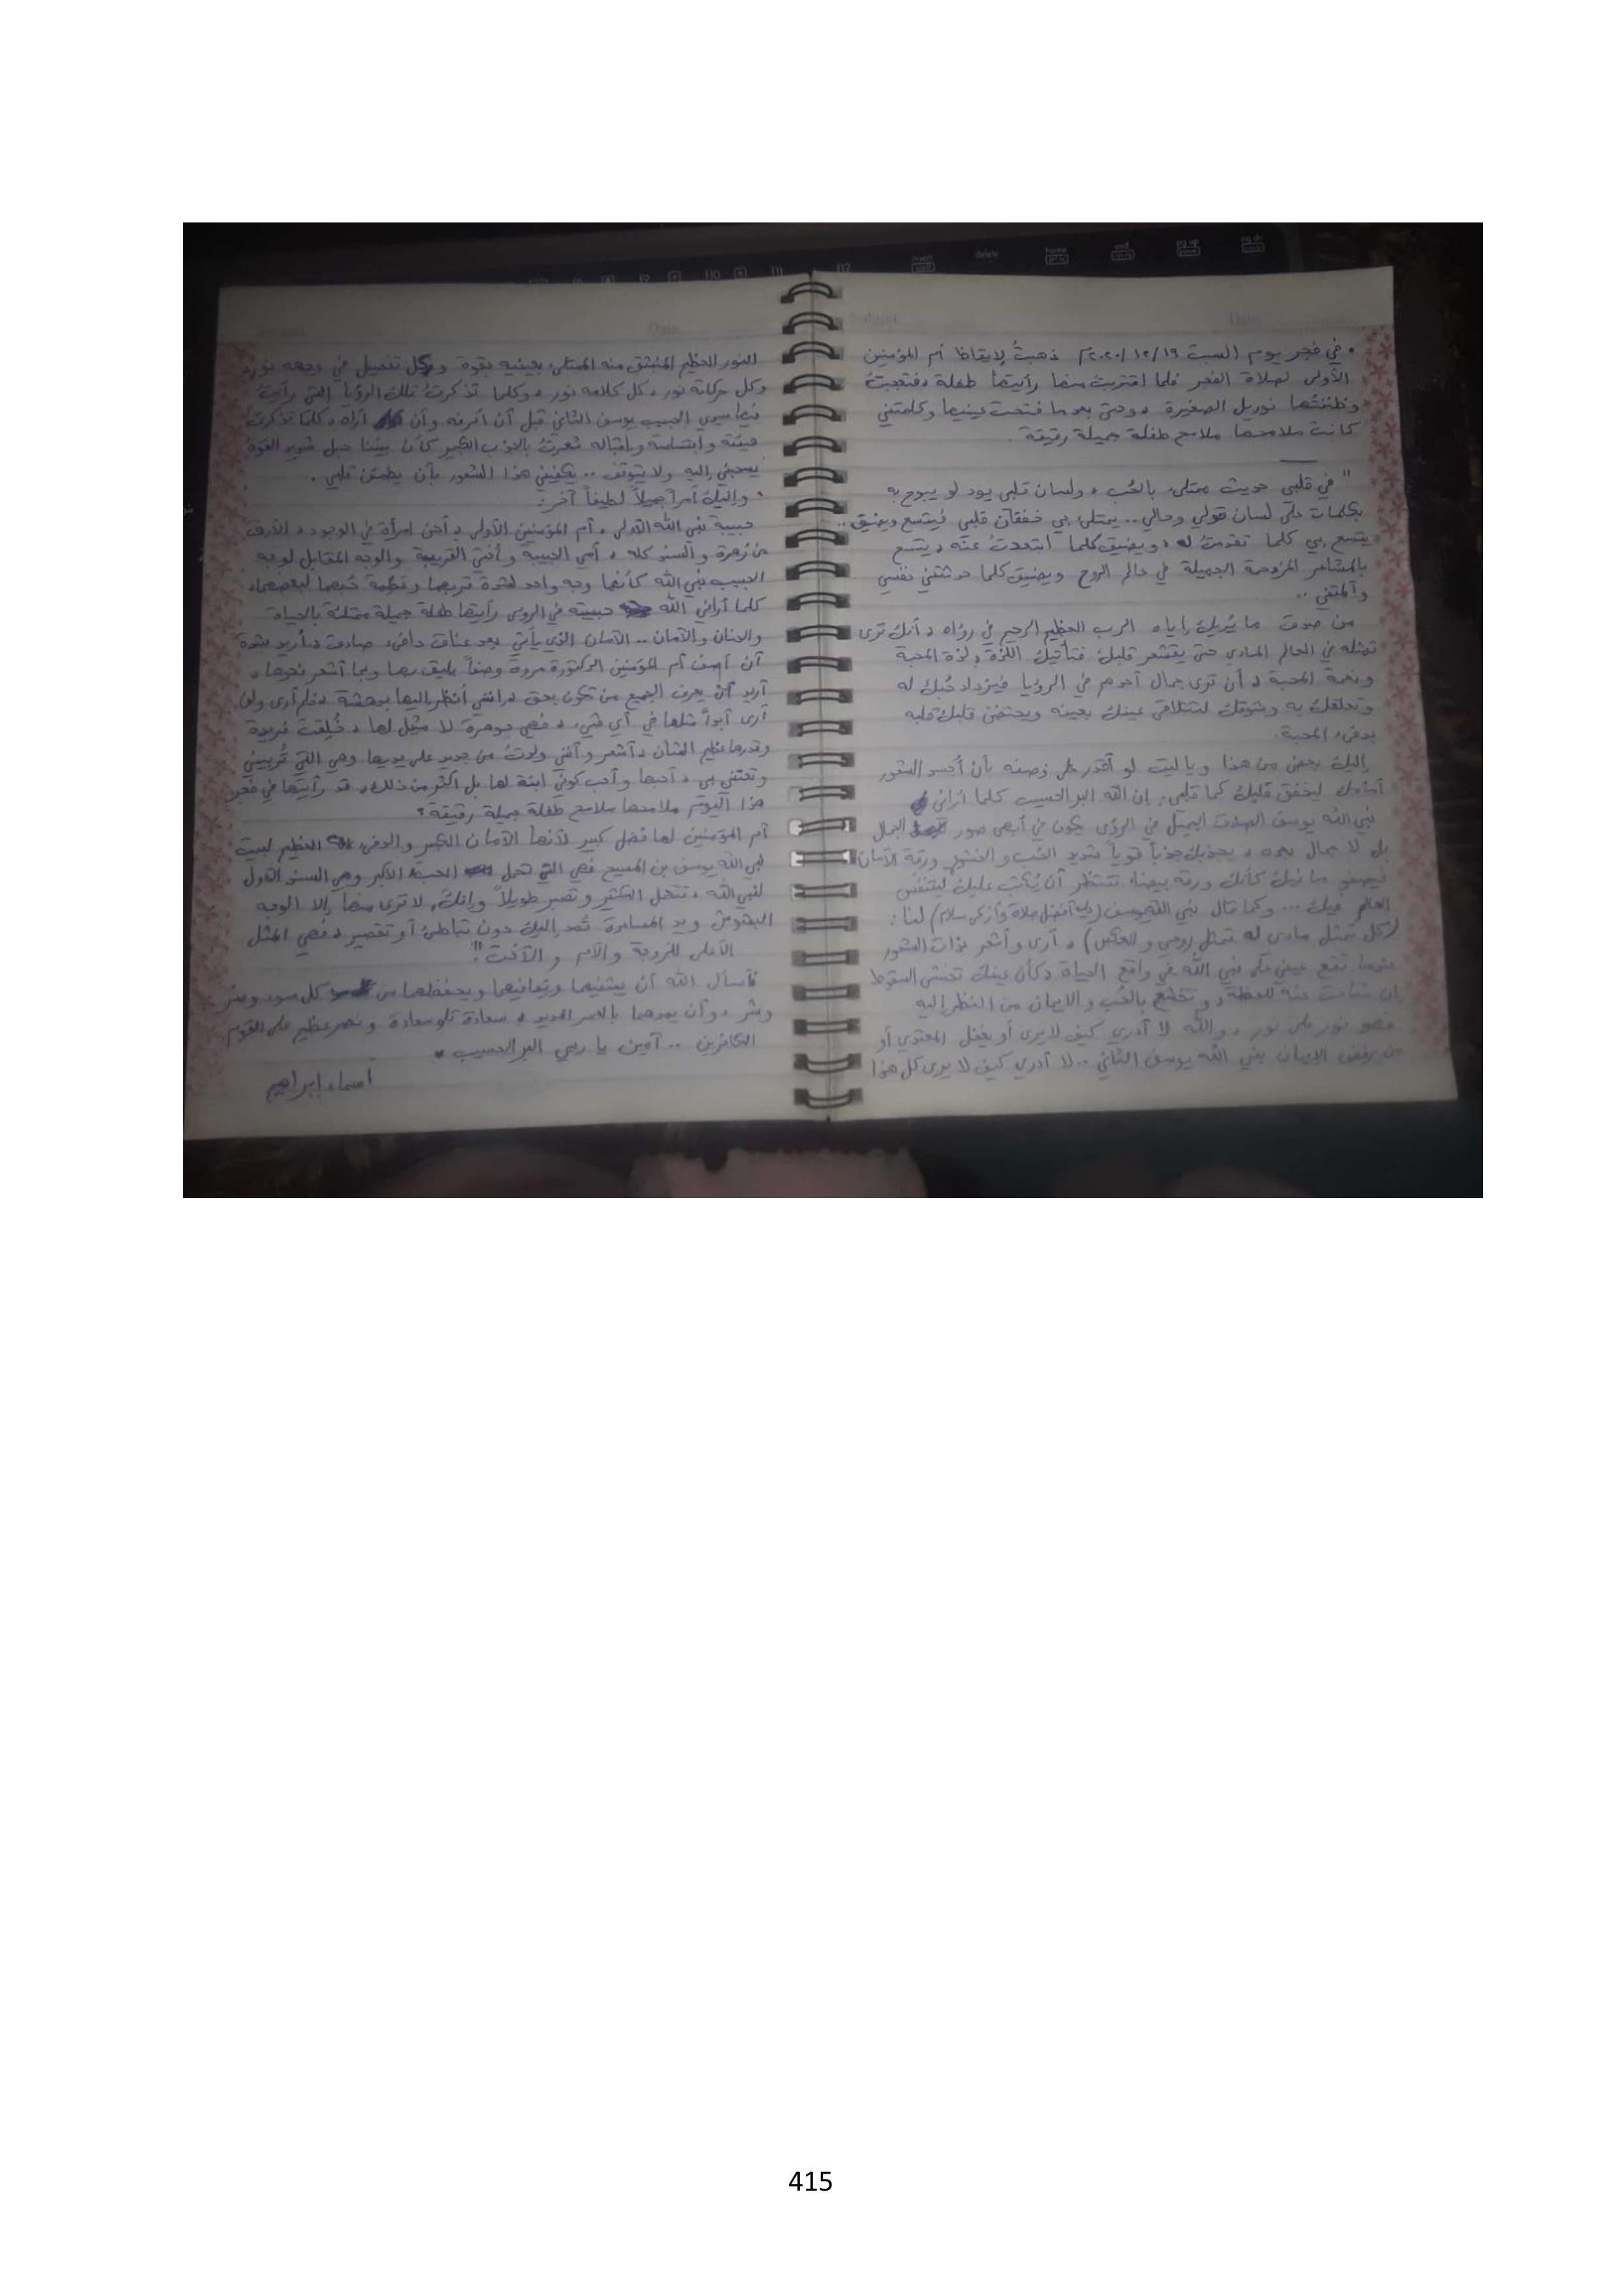 • في فجر يوم السبت ١٩/١٢/٢٠٢٠م ذهبتُ لإيقاظ أم المؤمنين
الأولى لصلاة الفجر فلما اقتربت منها رأيتها طفلة فتعجبتُ
وظننتها نوريل الصغيرة، وحتى بعدما فتحت عينيها وكلمتني
كانت ملامحها ملامح طفلة جميلة رقيقة.
" في قلبي حديث ممتلئ بالحُب، ولسان قلبي يود لو يبوح به
بكلمات على لسان قولي وحالي.. يمتلئ بي خفقان قلبي فيتسع ويضيق..
يتسع بي كلما تقدمتُ له، ويضيق كلما ابتعدتُ عنه، يتسع
بالمشاعر المزدحمة الجميلة في عالم الروح ويضيق كلما حدثتني نفسي
وآلمتني ..
من صدق ما يُريك إياه الرب العظيم الرحيم في رؤاه، أنك ترى
تمثله في العالم المادي حتى يقشعر قلبك فتأتيك اللذة، لذة المحبة
ونعمة المحبة، أن ترى جمال أحدهم في الرؤيا فيزداد حُبك له
وتعلقك به وشوقك لتتلاقى عينك بعينه ويحتضن قلبك قلبه
بدفء المحبة.
إليك بعض من هذا ويا ليت لو أقدر على وصفه بأن أُجسد الشعور
أمامك ليخفق قلبك كما قلبي، إن الله البر الحسيب كلما أراني
نبي الله يوسف الصادق الجميل في الرؤى يكون في أبهى صور الجمال
بل لا جمال بعده، يجذبك جذباً قوياً شديد الحُب و ورقة الأمان
ما فيك كأنك ورقة بيضاء تنتظر أن يُكتب عليك ليتنفس
العالم فيك ... وكما قال نبي الله يوسف (عليه أفضل صلاة وأزكى سلام) لنا:
(كل تمثل مادي له تمثل روحي والعكس)، أرى وأشعر بذات الشعور
عندما تقع عيني على نبي الله في واقع الحياة، كأن عينك تخشى السقوط
إن شاحت عنه للحظة، و بالحُب والإيمان من النظر إليه
فهو نور على نور، والله لا أدري كيف لا يرى أو يغفل أو
من يرفض الإيمان بنبي الله يوسف الثاني.. لا أدري كيف لا يرى كل هذا
النور العظيم المُنبثق منه الممتلئ بعينيه بقوة، وكل تفصيل في وجهه نور،
وكل حركاته نور، كل كلامه نور، وكلما تذكرتُ تلك الرؤيا التي رأيتُ
فيها سيدي الحبيب يوسف الثاني قبل أن أعرفه وأن أراه، كلما تذكرت
هيئته وابتسامته وإقباله شعرتُ بالجذب الكبير كأن بيننا حبل شديد القوة
يسحبني إليه ولا يتوقف .. يكفيني هذا الشعور بأن يطمئن قلبي.
• وإليك أمراً جميلاً لطيفاً آخر:
حبيبة نبي الله الأولى، أم المؤمنين الأولى، أحن امرأة في الوجود، الأرق
من زهرة والسند كله، أمي الحبيبة وأختي القريبة والوجه المقابل لوجه
الحبيب نبي الله كأنهما وجه واحد لشدة قربهما وعظمة حُبهما لبعضهما،
كلما أراني الله حبيبته في الرؤى رأيتها طفلة جميلة ممتلئة بالحياة
والحنان والأمان .. الأمان الذي يأتي بعد عناق دافئ صادق، أريد بشدة
أن أصف أم المؤمنين الدكتورة مروة وصفاً يليق بها وبما أشعر نحوها،
أريد أن يعرف الجميع من تكون بحق، إنني أنظر إليها بدهشة، فلم أرى ولن
أرى أبداً مثلها في أي شيء، فهي جوهرة لا مثيل لها، خُلقت فريدة
وقدرها عظيم الشأن، أشعر وأنني ولدتُ من جديد على يديها وهي التي تُربيني
وتعتني بي، أحبها وأحب كوني ابنة لها بل أكثر من ذلك، قد رأيتها في فجر
هذا اليوم ملامحها ملامح طفلة جميلة رقيقة؟
أم المؤمنين لها فضل كبير لأنها الأمان الكبير والدفء العظيم لبيت
نبي الله يوسف بن المسيح فهي التي تحمل الأكبر وهي السند الأول
لنبي الله، تتحمل الكثير وتصبر طويلاً وإنك لا ترى منها إلا الوجه
البشوش ويد المساعدة تُمد إليك دون تباطئ أو تقصير، فهي المثل
الأعلى للزوجة والأم والأخت"!
فأسأل الله أن يشفيهما ويُعافيهما ويحفظهما من كل سوء وضر
وشر، وأن يمدهما بالعمر المديد، سعادة تلو سعادة ونصر عظيم على القوم
الكافرين .. آمين يا ربي البر الحسيب •
أسماء إبراهيم
415